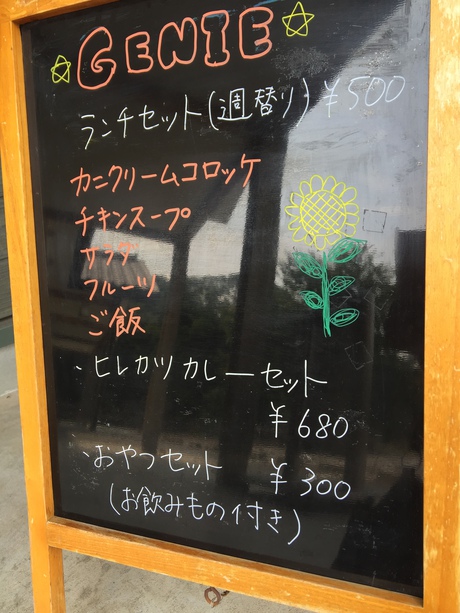 GENIE
ランチセット(週替り)¥500
カニクリームコロッケ
チキンスープ
サラダ
フルーツ
ご飯
・ヒレカツカレーセット
¥680
・おやつセット ¥300
(お飲みもの付き)